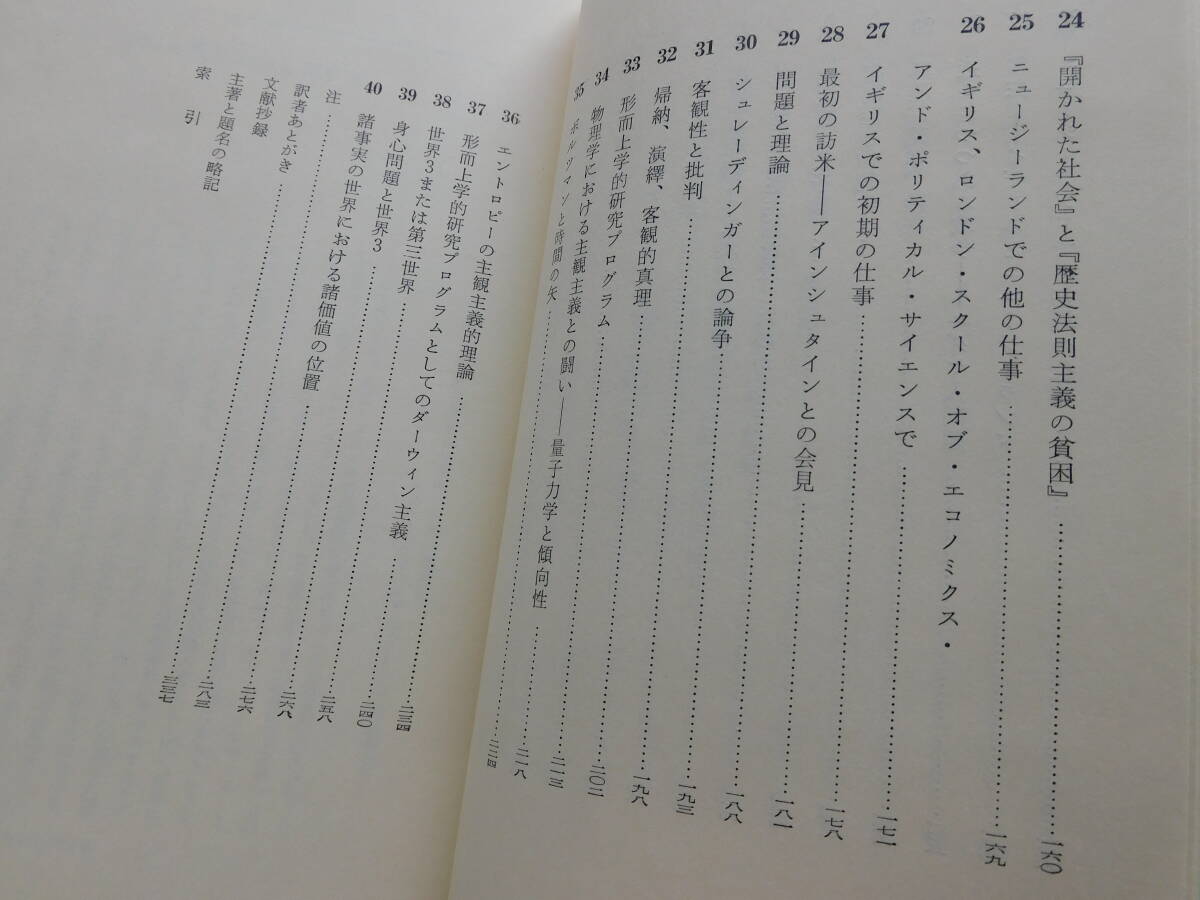 24 『開かれた社会』と『歴史法則主義の貧困』……一六〇
25 ニュージーランドでの他の仕事……一六九
26 イギリス、ロンドン・スクール・オブ・エコノミクス・
アンド・ポリティカル・サイエンスで……一七一
27 イギリスでの初期の仕事……一七八
28 最初の訪米──アインシュタインとの会見……一八一
29 問題と理論……一八八
30 シュレーディンガーとの論争……一九三
31 客観性と批判……一九八
32 帰納、演繹、客観的真理……二〇二
33 形而上学的研究プログラム……二一三
34 物理学における主観主義との闘い──量子力学と傾向性……二一八
35 ボルツマンと時間の矢……二二四
36 エントロピーの主観主義的理論……二三四
37 形而上学的研究プログラムとしてのダーウィン主義……二四〇
38 世界3または第三世界……二五八
39 身心問題と世界3……二六八
40 諸事実の世界における諸価値の位置……二七六
注……二八三
訳者あとがき……三三七
文献抄録
主著と題名の略記
索引